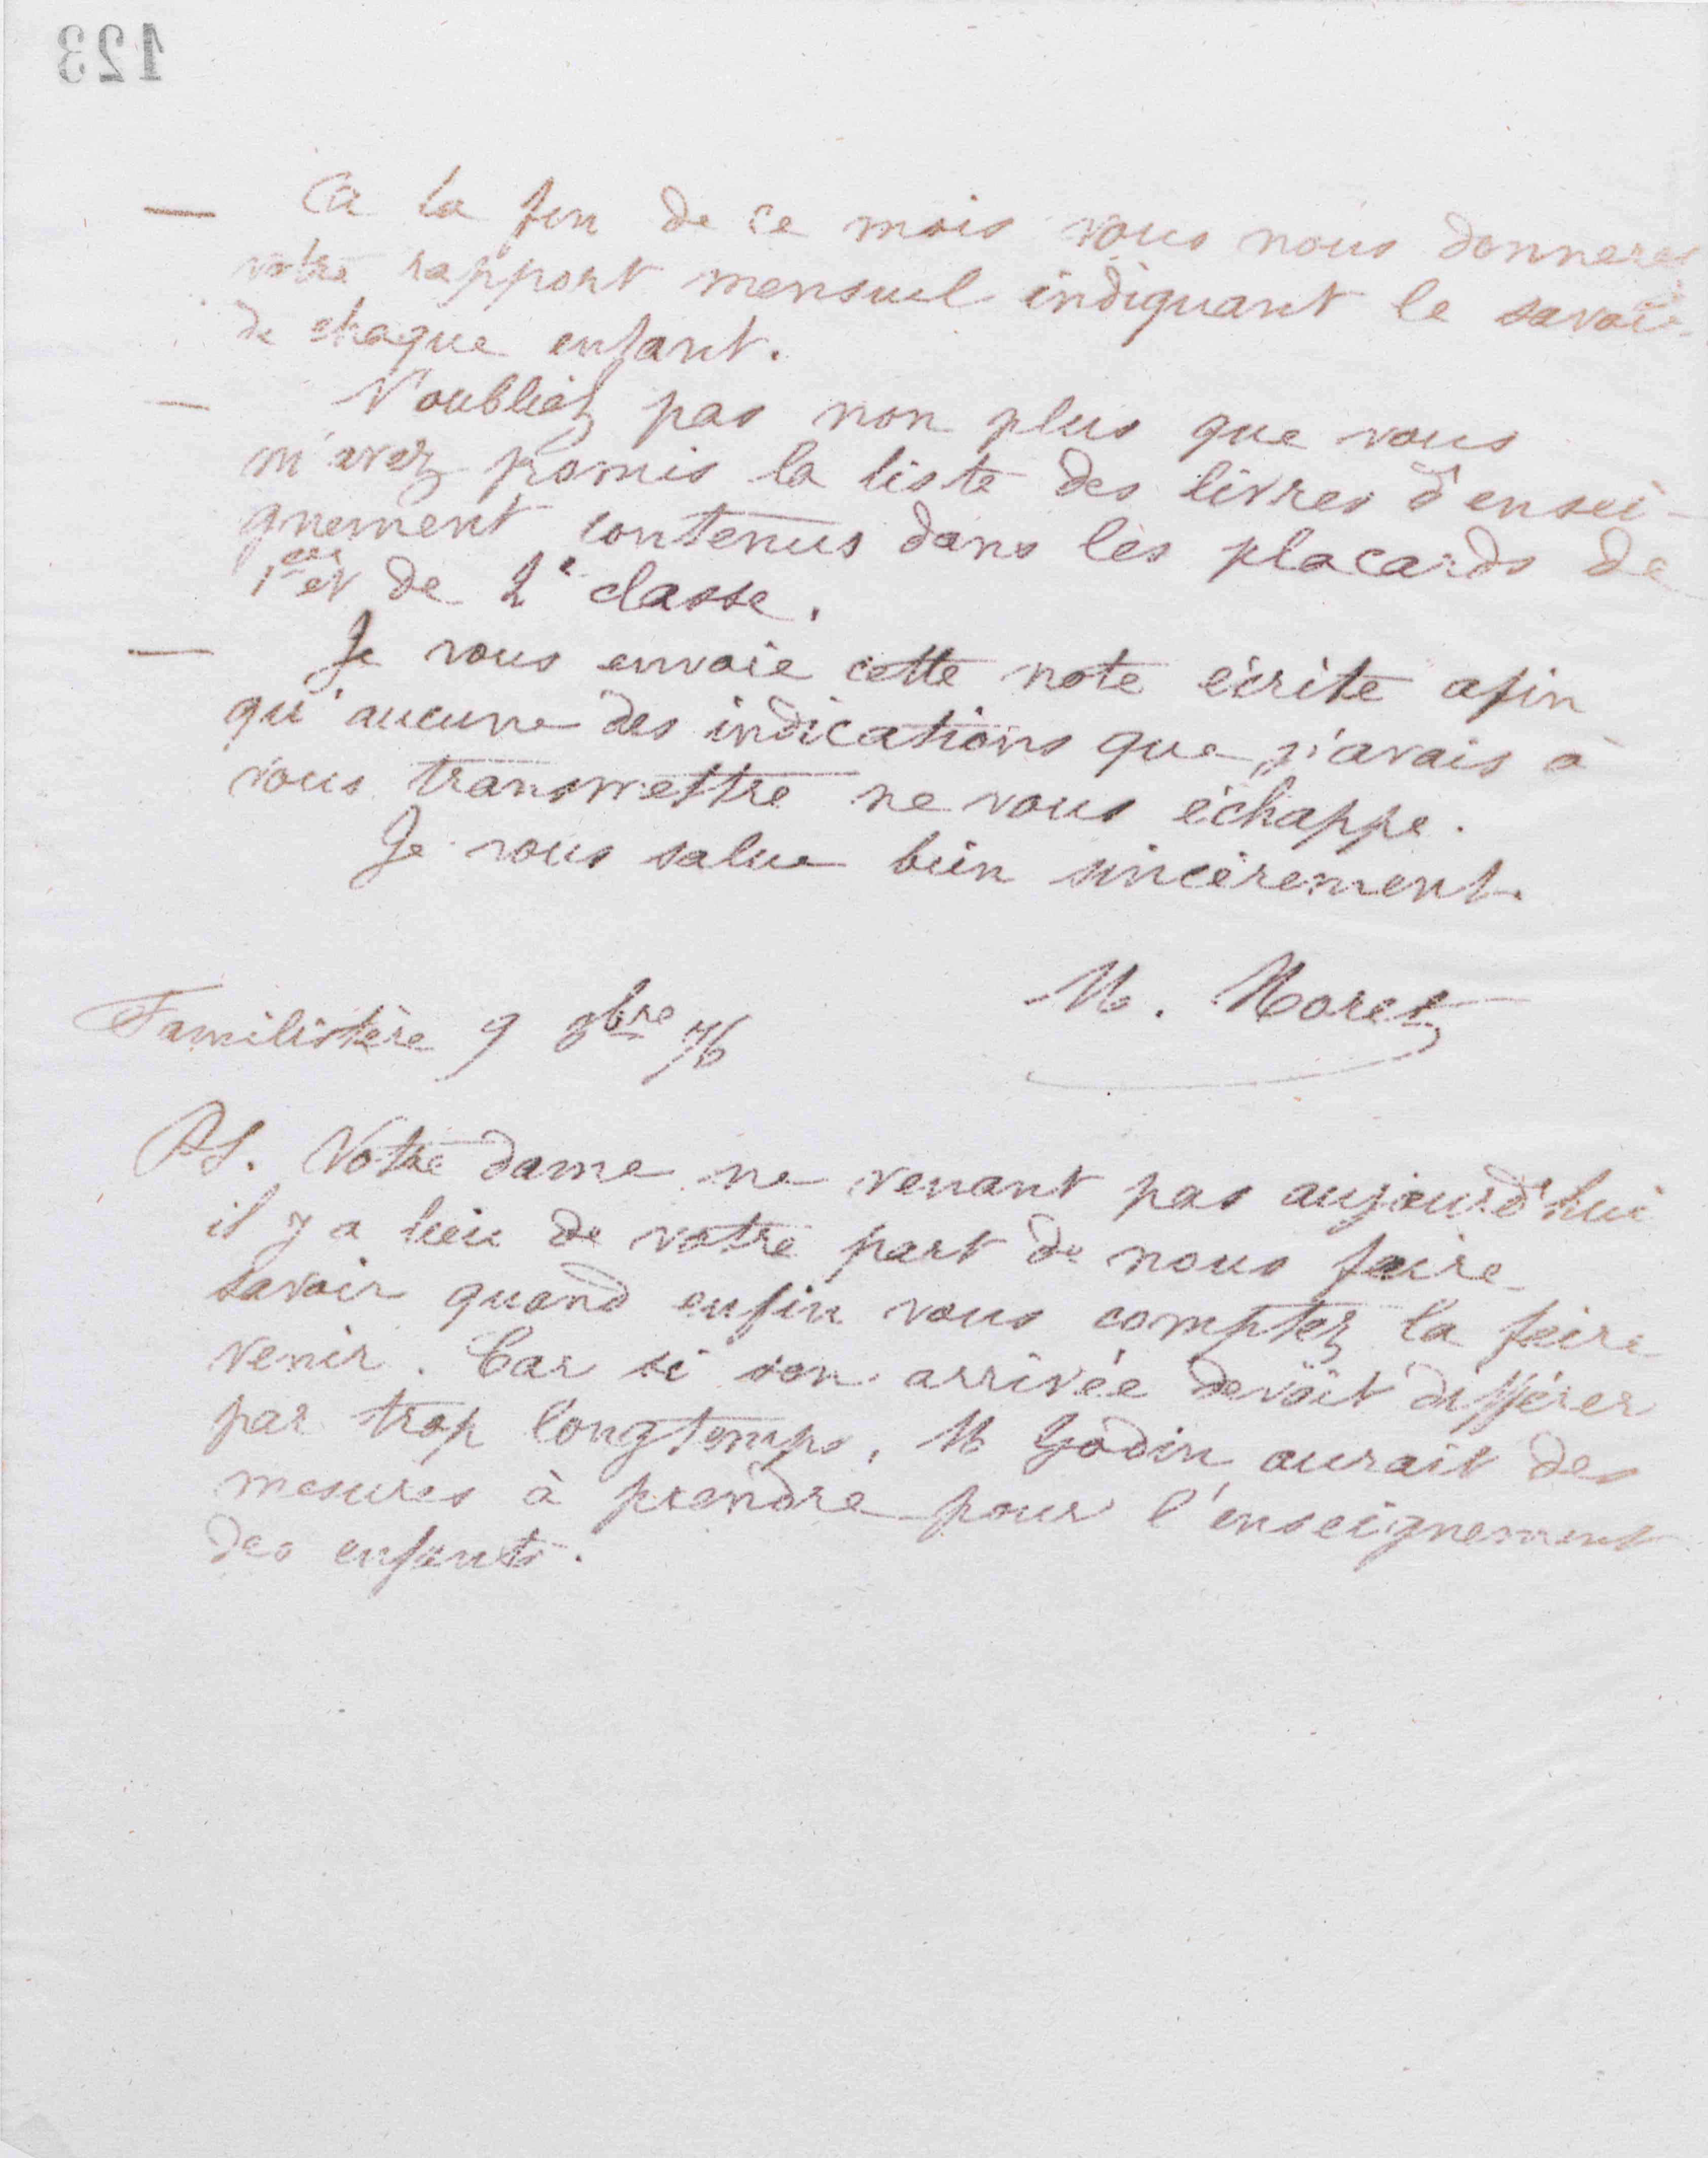 123
— A la fin de ce mois vous nous donnerez
votre rapport mensuel indiquant le savoir
de chaque enfant.
— N'oubliez pas non plus que vous
m'avez promis la liste des livres d'ensei-
gnement contenus dans les placards de
1ère et de 2e classe.
— Je vous envoie cette note écrite afin
qu'aucune des indications que j'avais à
vous transmettre ne vous échappe.
Je vous salue bien sincèrement.
M. Moret
Familistère 9 9bre 76
PS. Votre dame ne venant pas aujourd'hui
il y a lieu de votre part de nous faire
savoir quand enfin vous comptez la faire
venir. Car si son arrivée devait différer
par trop longtemps, M Godin aurait des
mesures à prendre pour l'enseignement
des enfants.